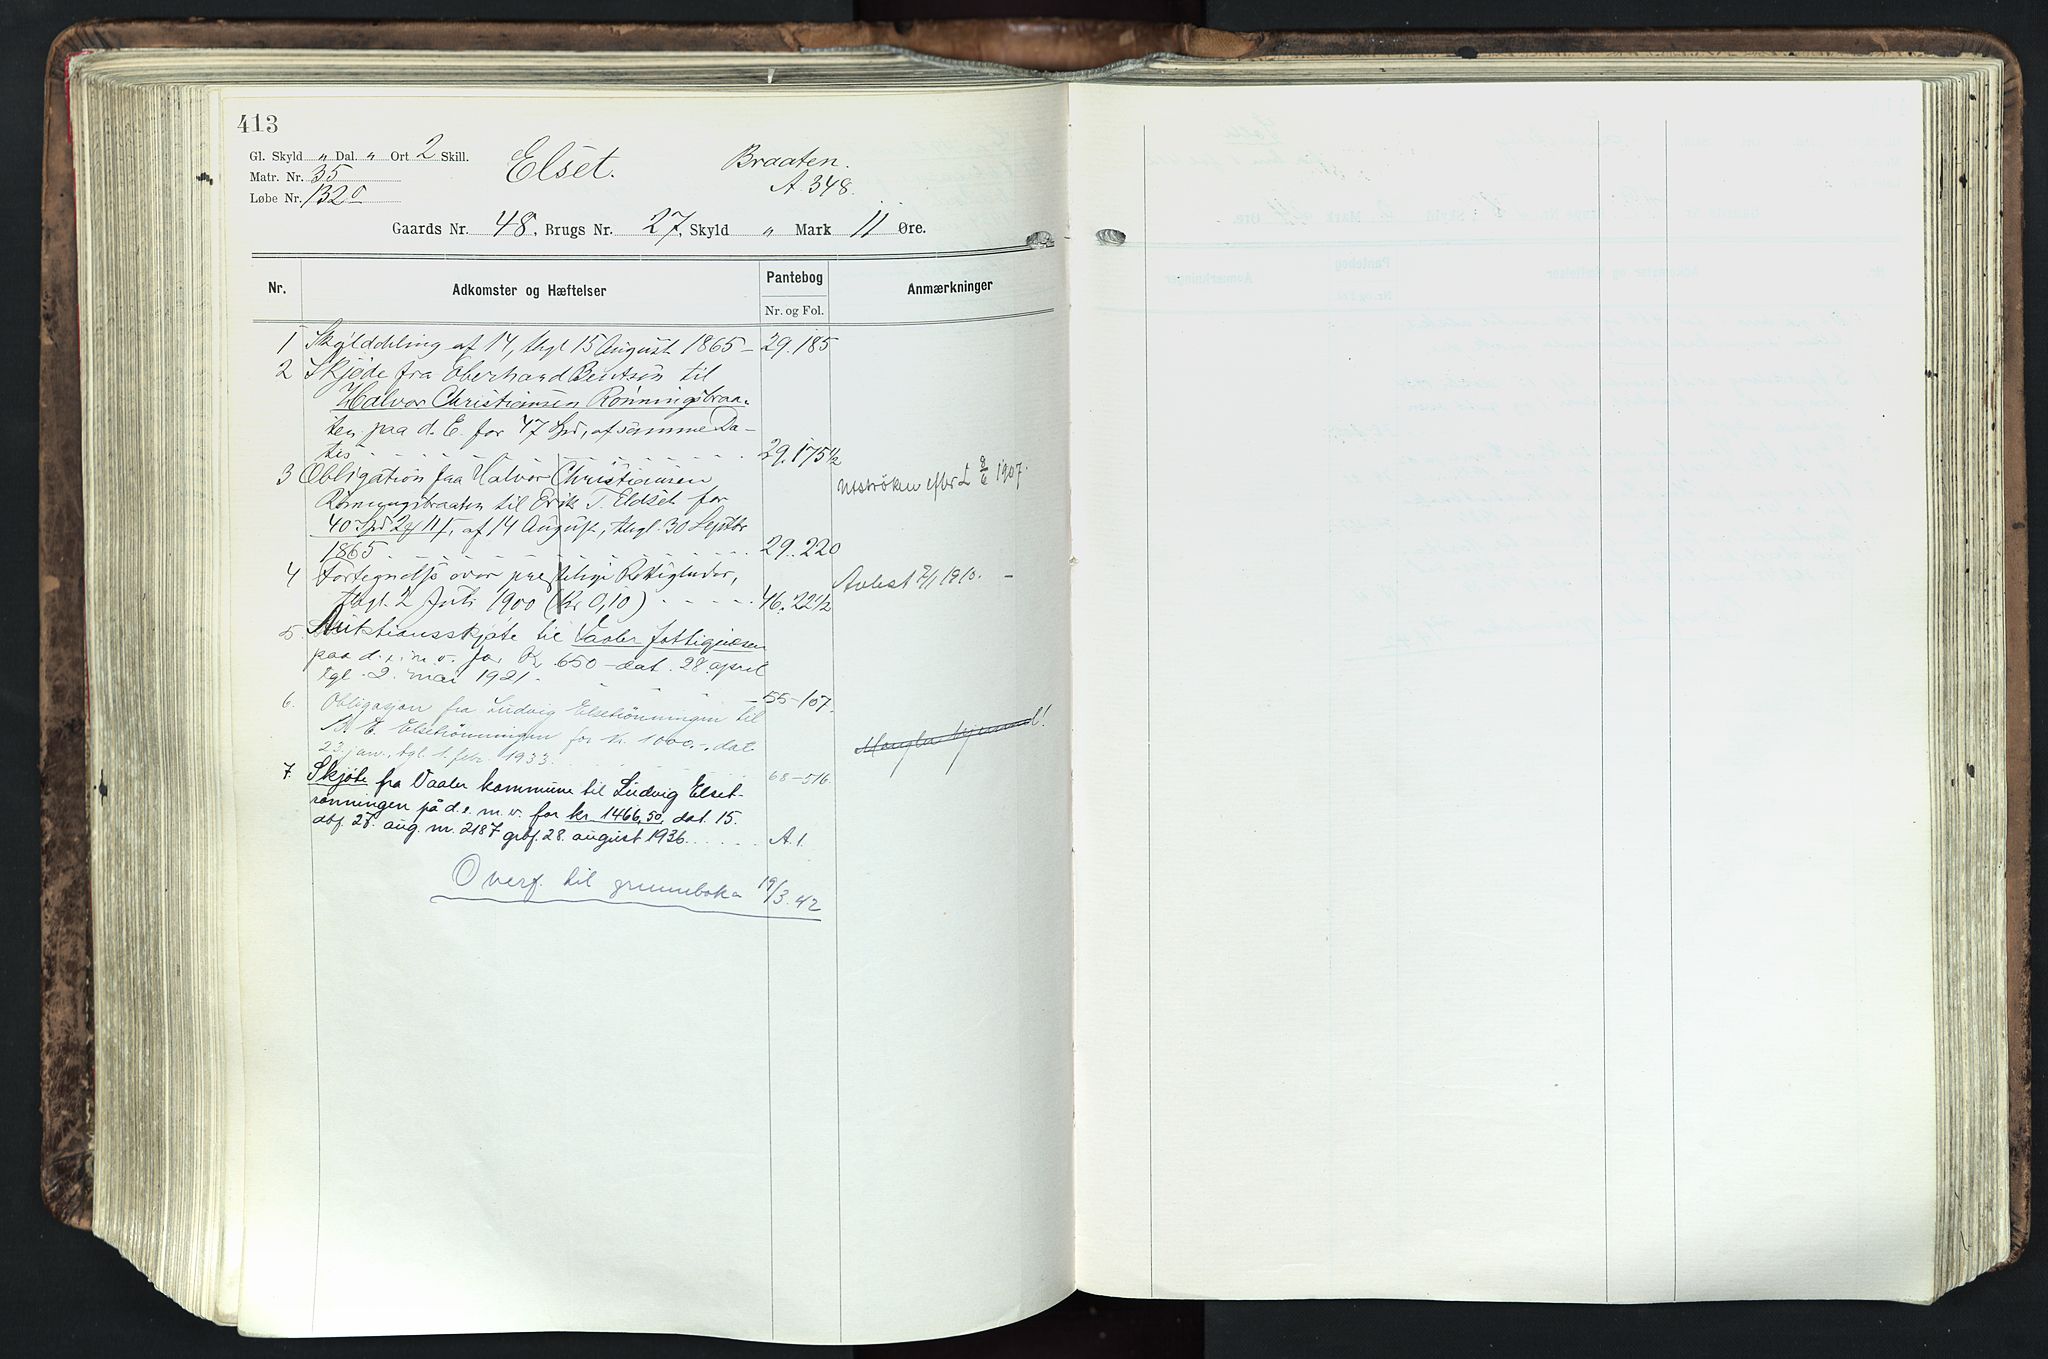 413
Gl. Skyld " Dal. " Ort 2 Skill.
Matr. Nr. 35
Løbe Nr. 132 o
Elset.
Braaten.
A. 348.
Gaards Nr. 48, Brugs Nr. 27, Skyld " Mark 11 Øre.
Nr. Adkomster og Hæftelser Pantebog Anmærkninger
Nr. og Fol.
1 Skylddeling af 14, thgl 15 August 1865 – 29. 185
2 Skjøde fra Oberhard Bentsen til
Halvor Christiansen Rønningsbraa-
ten paa d. E. for 47 Spd, af samme Da-
tis . . . . 29. 175 1/2
3 Obligation fra Halvor Christiansen
Rønningsbraaten til Erik T. Eldset for
40 Spd 2 11 , af 14 August, thgl. 30 Septbr
1865 . . . . 29. 220
Udstrøken efter L 8/6 1907.
4 Fortegnelse over Rettigheder,
thgl. 2 Juli 1900 (Kr 0,10) . . . . 46. 22 1/2
Avlest 1910. –
5. Auktionsskjøte til Vaaler fattigvæsen
paa d. e. m. v. for Kr 650 – dat. 28. april
tgl. 2. mai 1921. – 55–107.
6. Obligasjon fra Ludvig Elsetrønningen til
E. Elsetrønningen for kr. 1000.–, dat.
23. jan., tgl. 1. febr. 1933. . . . 68–516.
Mangler hjemmel!
7. Skjøte fra Vaaler kommune til Ludvig Elset-
rønningen på d. e. m. v. for kr. 1466,50, dat. 15.
dbf. 27. aug. nr. 2187 grbf. 28. august 1936. . . . . A. 1.
Overf. til grunnboka 19/3. 42